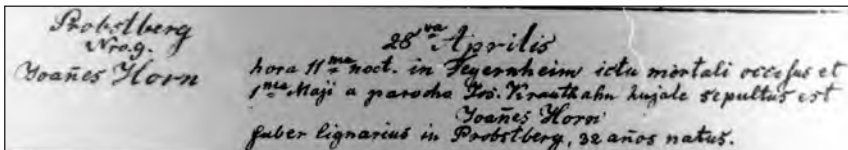 Probstberg
Nro. 9.
Joañes Horn
28va Aprilis
hora 11ma noct. in Tegernheim ictu mortali occisus et
1ma Maji a parocho Jos. Krauthahn hujate sepultus est
Joañes Horn
faber lignarius in Probstberg, 32 años natus.